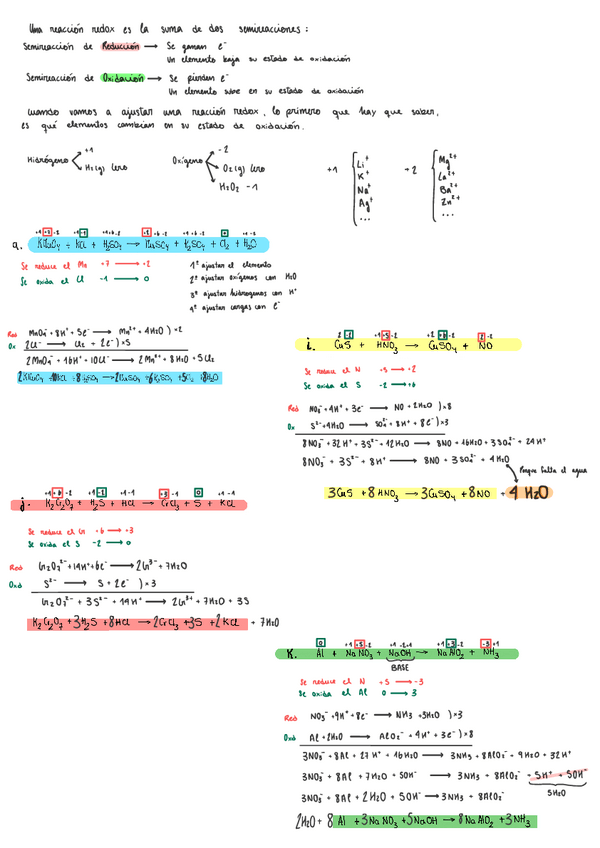 Una reacción redox es la suma de dos semireacciones:
Semireacción de Reducción → Se ganan e⁻
Un elemento baja su estado de oxidación
Semireacción de Oxidación → Se pierden e⁻
Un elemento sube en su estado de oxidación
Cuando vamos a ajustar una reacción redox, lo primero que hay que saber,
es qué elementos cambian en su estado de oxidación.
Hidrógeno +1
H₂(g) Cero
Oxígeno -2
O₂(g) Cero
H₂O₂ -1
+1 Li⁺ K⁺ Na⁺ Ag⁺ ...
+2 Mg²⁺ Ca²⁺ Ba²⁺ Zn²⁺ ...
a. KMnO₄ + KCl + H₂SO₄ → MnSO₄ + K₂SO₄ + Cl₂ + H₂O
Se reduce el Mn +7 → +2
Se oxida el Cl -1 → 0
1º ajustar el elemento
2º ajustar oxígenos con H₂O
3º ajustar hidrógenos con H⁺
4º ajustar cargas con e⁻
Red MnO₄⁻ + 8H⁺ + 5e⁻ → Mn²⁺ + 4H₂O ) ×2
Ox 2Cl⁻ → Cl₂ + 2e⁻ ) ×5
2MnO₄⁻ + 16H⁺ + 10Cl⁻ → 2Mn²⁺ + 8H₂O + 5Cl₂
i. CuS + HNO₃ → CuSO₄ + NO
Se reduce el N +5 → +2
Se oxida el S -2 → +6
Red NO₃⁻ + 4H⁺ + 3e⁻ → NO + 2H₂O ) ×8
Ox S²⁻ + 4H₂O → SO₄²⁻ + 8H⁺ + 8e⁻ ) ×3
8NO₃⁻ + 32H⁺ + 3S²⁻ + 12H₂O → 8NO + 16H₂O + 3SO₄²⁻ + 24H⁺
8NO₃⁻ + 3S²⁻ + 8H⁺ → 8NO + 3SO₄²⁻ + 4H₂O
Porque falta el agua
3CuS + 8HNO₃ → 3CuSO₄ + 8NO + 4H₂O
j. K₂Cr₂O₇ + H₂S + HCl → CrCl₃ + S + KCl
Se reduce el Cr +6 → +3
Se oxida el S -2 → 0
Red Cr₂O₇²⁻ + 14H⁺ + 6e⁻ → 2Cr³⁻ + 7H₂O
Oxd S²⁻ → S + 2e⁻ ) ×3
Cr₂O₇²⁻ + 3S²⁻ + 14H⁺ → 2Cr³⁺ + 7H₂O + 3S
K₂Cr₂O₇ + 3H₂S + 8HCl → 2CrCl₃ + 3S + 2KCl + 7H₂O
k. Al + NaNO₃ + NaOH → NaAlO₂ + NH₃
BASE
Se reduce el N +5 → -3
Se oxida el Al 0 → 3
Red NO₃⁻ + 9H⁺ + 8e⁻ → NH₃ + 3H₂O ) ×3
Oxd Al + 2H₂O → AlO₂⁻ + 4H⁺ + 3e⁻ ) ×8
3NO₃⁻ + 8Al + 27H⁺ + 16H₂O → 3NH₃ + 8AlO₂⁻ + 9H₂O + 32H⁺
3NO₃⁻ + 8Al + 7H₂O + 5OH⁻ → 3NH₃ + 8AlO₂⁻ + 5H⁺ + 5OH⁻
5H₂O
3NO₃⁻ + 8Al + 2H₂O + 5OH⁻ → 3NH₃ + 8AlO₂⁻
2H₂O + 8Al + 3NaNO₃ + 5NaOH → 8NaAlO₂ + 3NH₃